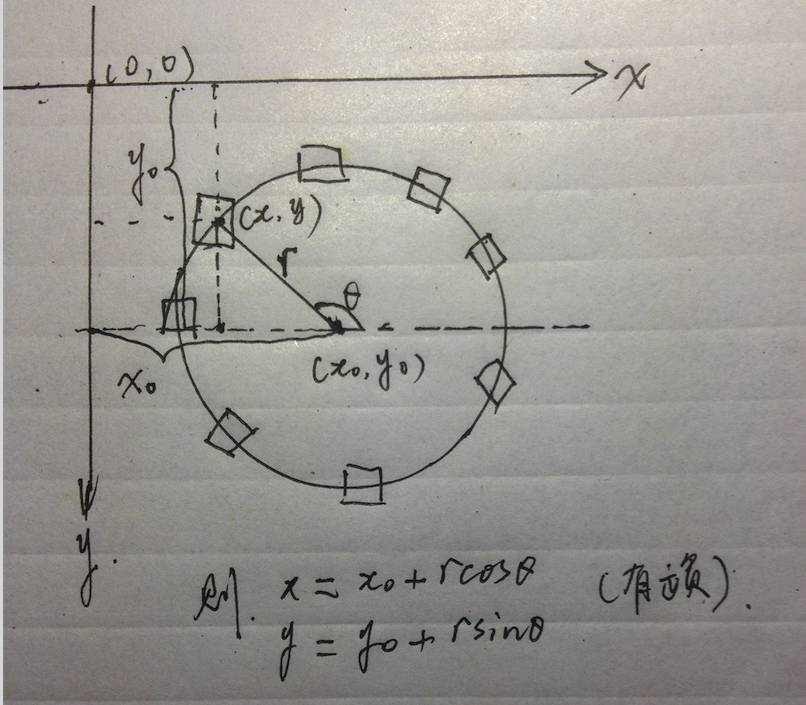 (0,0)
x
y₀
(x,y)
r
θ
(x₀,y₀)
x₀
y.
则. x = x₀ + rcosθ (有正负).
y = y₀ + rsinθ